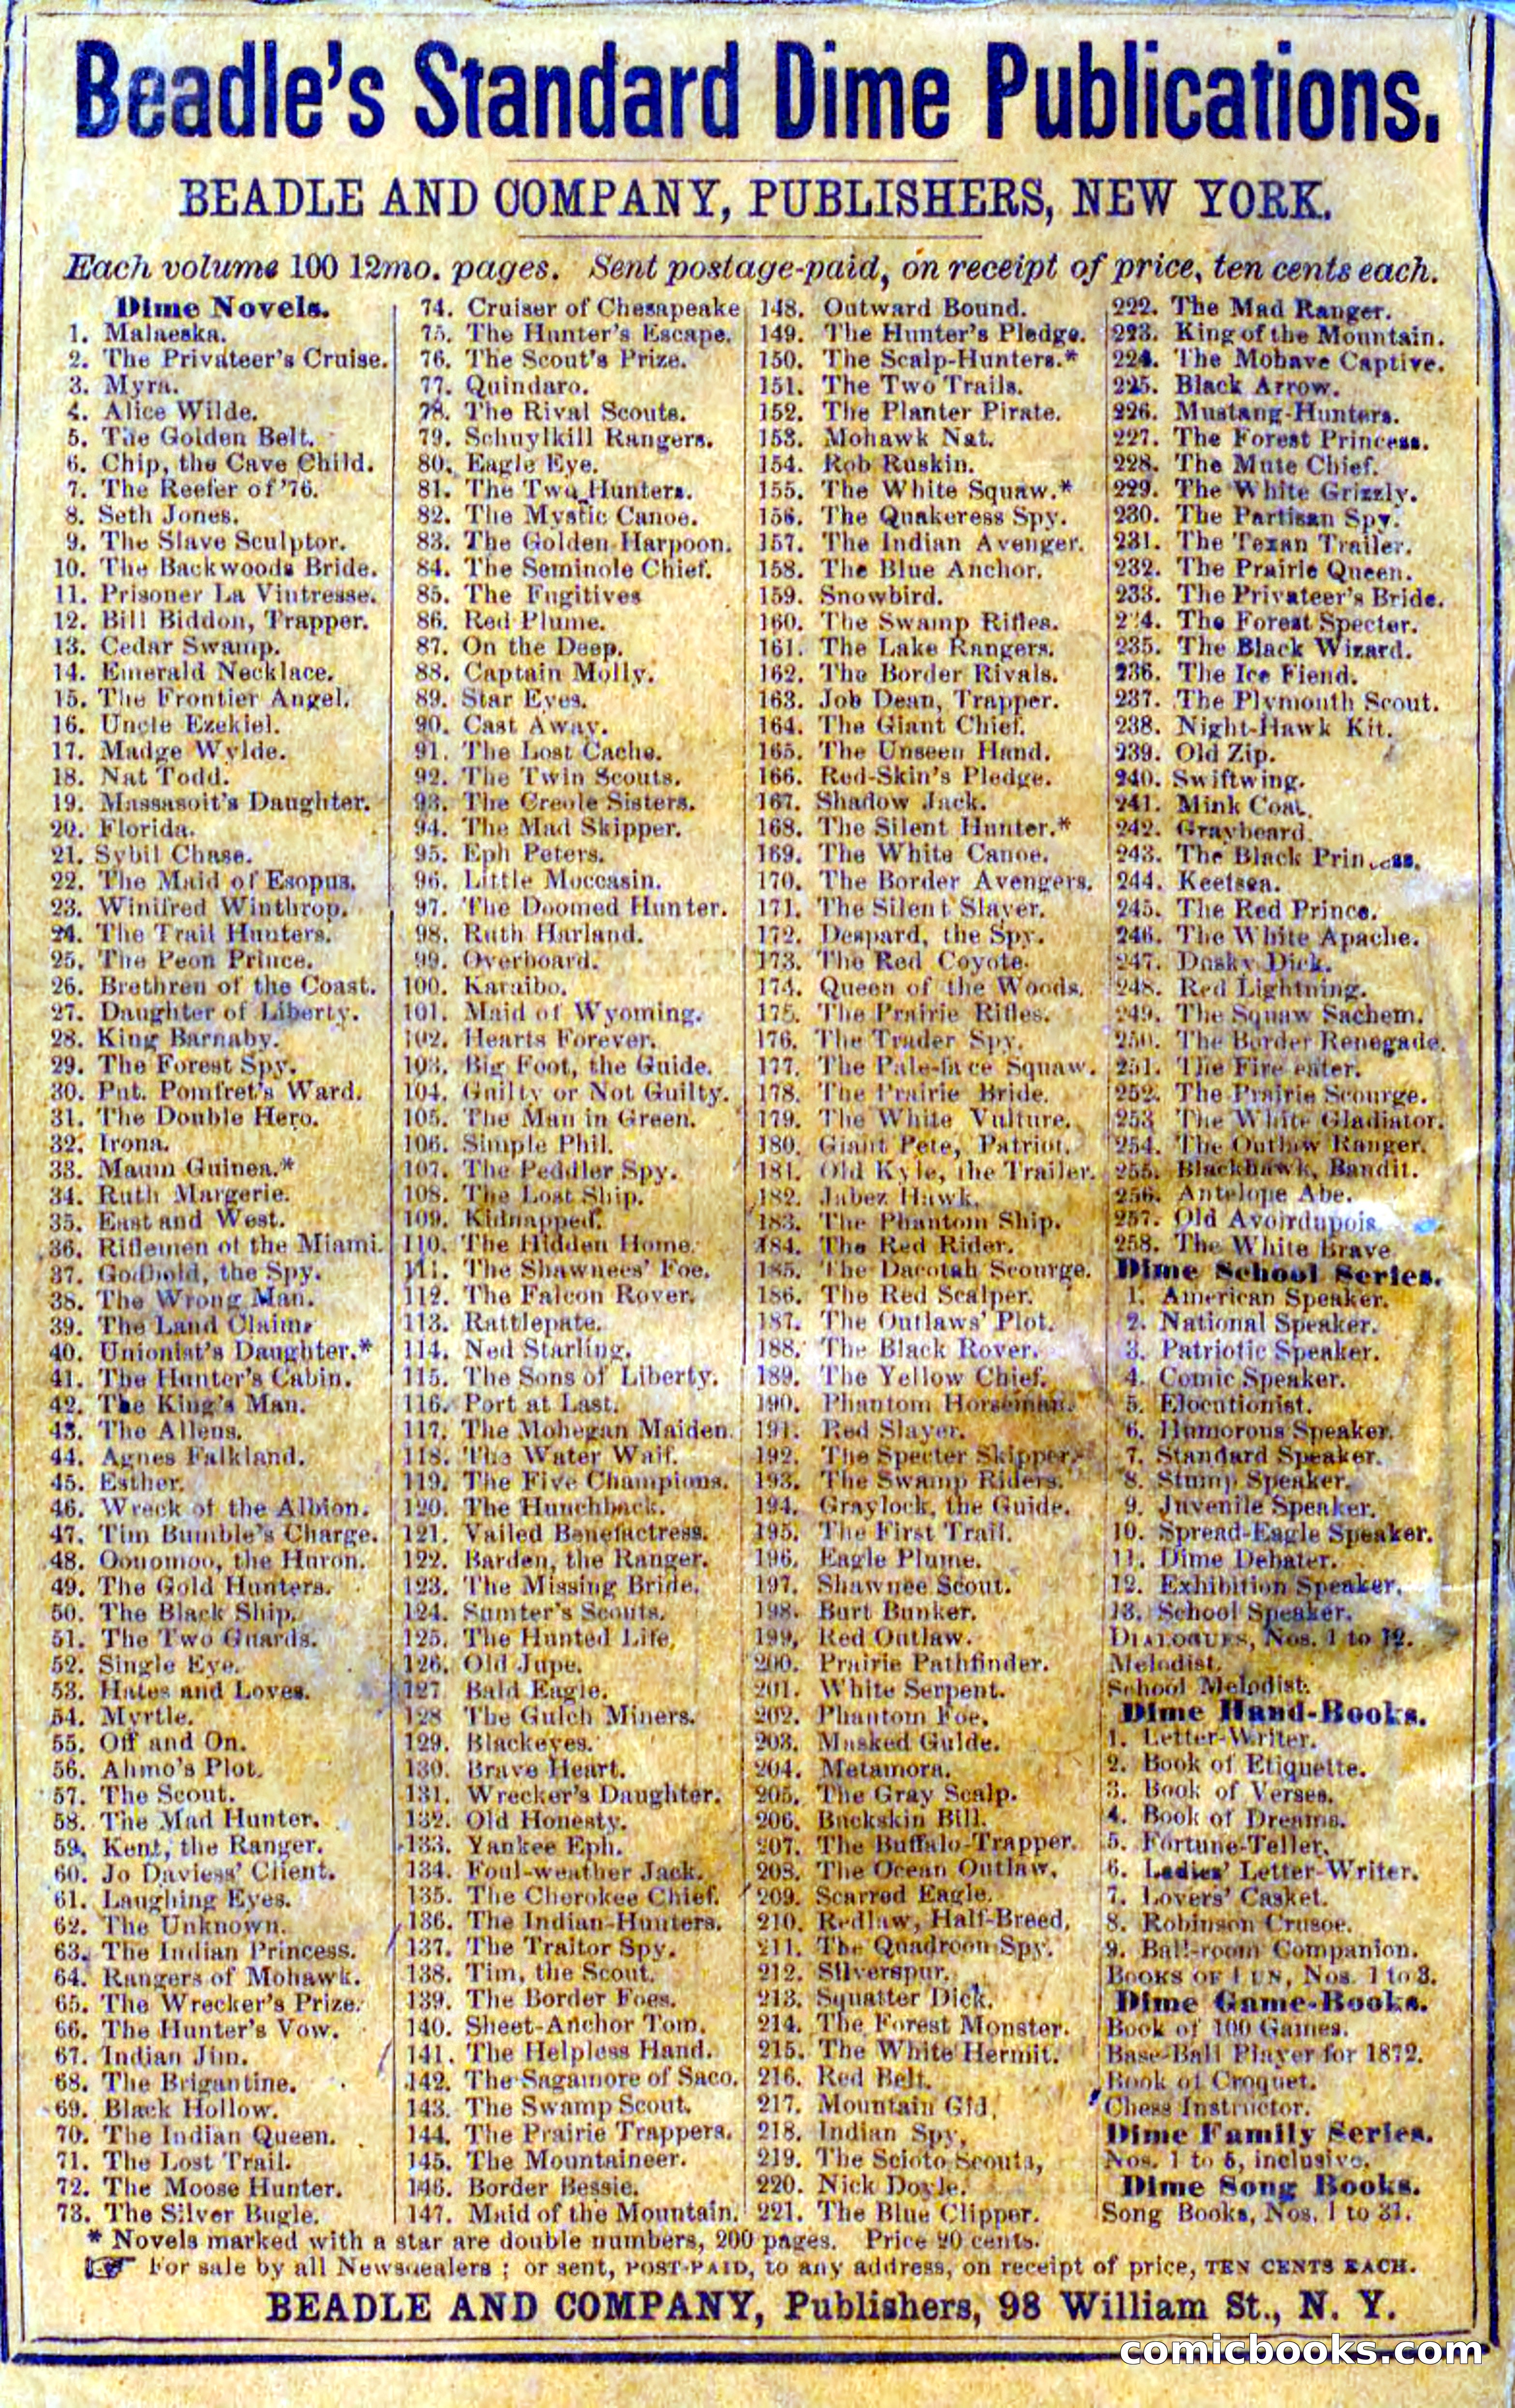 Beadle's Standard Dime Publications.
BEADLE AND COMPANY, PUBLISHERS, NEW YORK.
Each volume 100 12mo. pages. Sent postage-paid, on receipt of price, ten cents each.
Dime Novels.
1. Malaeska.
2. The Privateer's Cruise.
3. Myra.
4. Alice Wilde.
5. The Golden Belt.
6. Chip, the Cave Child.
7. The Reefer of '76.
8. Seth Jones.
9. The Slave Sculptor.
10. The Backwoods Bride.
11. Prisoner La Vintresse.
12. Bill Biddon, Trapper.
13. Cedar Swamp.
14. Emerald Necklace.
15. The Frontier Angel.
16. Uncle Ezekiel.
17. Madge Wylde.
18. Nat Todd.
19. Massasoit's Daughter.
20. Florida.
21. Sybil Chase.
22. The Maid of Esopus.
23. Winifred Winthrop.
24. The Trail Hunters.
25. The Peon Prince.
26. Brethren of the Coast.
27. Daughter of Liberty.
28. King Barnaby.
29. The Forest Spy.
30. Put. Pomfret's Ward.
31. The Double Hero.
32. Irona.
33. Maum Guinea.*
34. Ruth Margerie.
35. East and West.
36. Riflemen of the Miami.
37. Godbold, the Spy.
38. The Wrong Man.
39. The Land Claim.
40. Unionist's Daughter.*
41. The Hunter's Cabin.
42. The King's Man.
43. The Allens.
44. Agnes Falkland.
45. Esther.
46. Wreck of the Albion.
47. Tim Bumble's Charge.
48. Oonomoo, the Huron.
49. The Gold Hunters.
50. The Black Ship.
51. The Two Guards.
52. Single Eye.
53. Hates and Loves.
54. Myrtle.
55. Off and On.
56. Ahmo's Plot.
57. The Scout.
58. The Mad Hunter.
59. Kent, the Ranger.
60. Jo Daviess' Client.
61. Laughing Eyes.
62. The Unknown.
63. The Indian Princess.
64. Rangers of Mohawk.
65. The Wrecker's Prize.
66. The Hunter's Vow.
67. Indian Jim.
68. The Brigantine.
69. Black Hollow.
70. The Indian Queen.
71. The Lost Trail.
72. The Moose Hunter.
73. The Silver Bugle.
74. Cruiser of Chesapeake
75. The Hunter's Escape.
76. The Scout's Prize.
77. Quindaro.
78. The Rival Scouts.
79. Schuylkill Rangers.
80. Eagle Eye.
81. The Two Hunters.
82. The Mystic Canoe.
83. The Golden Harpoon.
84. The Seminole Chief.
85. The Fugitives
86. Red Plume.
87. On the Deep.
88. Captain Molly.
89. Star Eyes.
90. Cast Away.
91. The Lost Cache.
92. The Twin Scouts.
93. The Creole Sisters.
94. The Mad Skipper.
95. Eph Peters.
96. Little Moccasin.
97. The Doomed Hunter.
98. Ruth Harland.
99. Overboard.
100. Karaibo.
101. Maid of Wyoming.
102. Hearts Forever.
103. Big Foot, the Guide.
104. Guilty or Not Guilty.
105. The Man in Green.
106. Simple Phil.
107. The Peddler Spy.
108. The Lost Ship.
109. Kidnapped.
110. The Hidden Home.
111. The Shawnees' Foe.
112. The Falcon Rover.
113. Rattlepate.
114. Ned Starling.
115. The Sons of Liberty.
116. Port at Last.
117. The Mohegan Maiden.
118. The Water Waif.
119. The Five Champions.
120. The Hunchback.
121. Vailed Benefactress.
122. Barden, the Ranger.
123. The Missing Bride.
124. Sumter's Scouts.
125. The Hunted Life.
126. Old Jupe.
127. Bald Eagle.
128 The Gulch Miners.
129. Blackeyes.
130. Brave Heart.
131. Wrecker's Daughter.
132. Old Honesty.
133. Yankee Eph.
134. Foul-weather Jack.
135. The Cherokee Chief.
136. The Indian-Hunters.
137. The Traitor Spy.
138. Tim, the Scout.
139. The Border Foes.
140. Sheet-Anchor Tom.
141. The Helpless Hand.
142. The Sagamore of Saco.
143. The Swamp Scout.
144. The Prairie Trappers.
145. The Mountaineer.
146. Border Bessie.
147. Maid of the Mountain.
148. Outward Bound.
149. The Hunter's Pledge.
150. The Scalp-Hunters.*
151. The Two Trails.
152. The Planter Pirate.
153. Mohawk Nat.
154. Rob Ruskin.
155. The White Squaw.*
156. The Quakeress Spy.
157. The Indian Avenger.
158. The Blue Anchor.
159. Snowbird.
160. The Swamp Rifles.
161. The Lake Rangers.
162. The Border Rivals.
163. Job Dean, Trapper.
164. The Giant Chief.
165. The Unseen Hand.
166. Red-Skin's Pledge.
167. Shadow Jack.
168. The Silent Hunter.*
169. The White Canoe.
170. The Border Avengers.
171. The Silent Slayer.
172. Despard, the Spy.
173. The Red Coyote.
174. Queen of the Woods.
175. The Prairie Rifles.
176. The Trader Spy.
177. The Pale-face Squaw.
178. The Prairie Bride.
179. The White Vulture.
180. Giant Pete, Patriot.
181. Old Kyle, the Trailer.
182. Jabez Hawk.
183. The Phantom Ship.
184. The Red Rider.
185. The Dacotah Scourge.
186. The Red Scalper.
187. The Outlaws' Plot.
188. The Black Rover.
189. The Yellow Chief.
190. Phantom Horseman.
191. Red Slayer.
192. The Specter Skipper.
193. The Swamp Riders.
194. Graylock, the Guide.
195. The First Trail.
196. Eagle Plume.
197. Shawnee Scout.
198. Burt Bunker.
199. Red Outlaw.
200. Prairie Pathfinder.
201. White Serpent.
202. Phantom Foe.
203. Masked Guide.
204. Metamora.
205. The Gray Scalp.
206. Buckskin Bill.
207. The Buffalo-Trapper.
208. The Ocean Outlaw.
209. Scarred Eagle.
210. Redlaw, Half-Breed.
211. The Quadroon Spy.
212. Silverspur.
213. Squatter Dick.
214. The Forest Monster.
215. The White Hermit.
216. Red Belt.
217. Mountain Gid,
218. Indian Spy,
219. The Scioto Scouts,
220. Nick Doyle.
221. The Blue Clipper.
222. The Mad Ranger.
223. King of the Mountain.
224. The Mohave Captive.
225. Black Arrow.
226. Mustang-Hunters.
227. The Forest Princess.
228. The Mute Chief.
229. The White Grizzly.
230. The Partisan Spy.
231. The Texan Trailer.
232. The Prairie Queen.
233. The Privateer's Bride.
234. The Forest Specter.
235. The Black Wizard.
236. The Ice Fiend.
237. The Plymouth Scout.
238. Night-Hawk Kit.
239. Old Zip.
240. Swiftwing.
241. Mink Coat.
242. Graybeard.
243. The Black Princess.
244. Keetsea.
245. The Red Prince.
246. The White Apache.
247. Dusky Dick.
248. Red Lightning.
249. The Squaw Sachem.
250. The Border Renegade.
251. The Fire eater.
252. The Prairie Scourge.
253 The White Gladiator.
254. The Outlaw Ranger.
255. Blackhawk, Bandit.
256. Antelope Abe.
257. Old Avoirdupois
258. The White Brave
Dime School Series.
1. American Speaker.
2. National Speaker.
3. Patriotic Speaker.
4. Comic Speaker.
5. Elocutionist.
6. Humorous Speaker.
7. Standard Speaker.
8. Stump Speaker.
9. Juvenile Speaker.
10. Spread-Eagle Speaker.
11. Dime Debater.
12. Exhibition Speaker.
13. School Speaker.
DIALOGUES, Nos. 1 to 12.
Melodist.
School Melodist.
Dime Hand-Books.
1. Letter-Writer.
2. Book of Etiquette.
3. Book of Verses.
4. Book of Dreams.
5. Fortune-Teller.
6. Ladies' Letter-Writer.
7. Lovers' Casket.
8. Robinson Crusoe.
9. Ball-room Companion.
BOOKS OF FUN, Nos. 1 to 3.
Dime Game-Books.
Book of 100 Games.
Base-Ball Player for 1872.
Book of Croquet.
Chess Instructor.
Dime Family Series.
Nos. 1 to 6, inclusive.
Dime Song Books.
Song Books, Nos. 1 to 31.
* Novels marked with a star are double numbers, 200 pages. Price 20 cents.
☞ For sale by all Newsdealers ; or sent, POST-PAID, to any address, on receipt of price, TEN CENTS EACH.
BEADLE AND COMPANY, Publishers, 98 William St., N. Y.
comicbooks.com